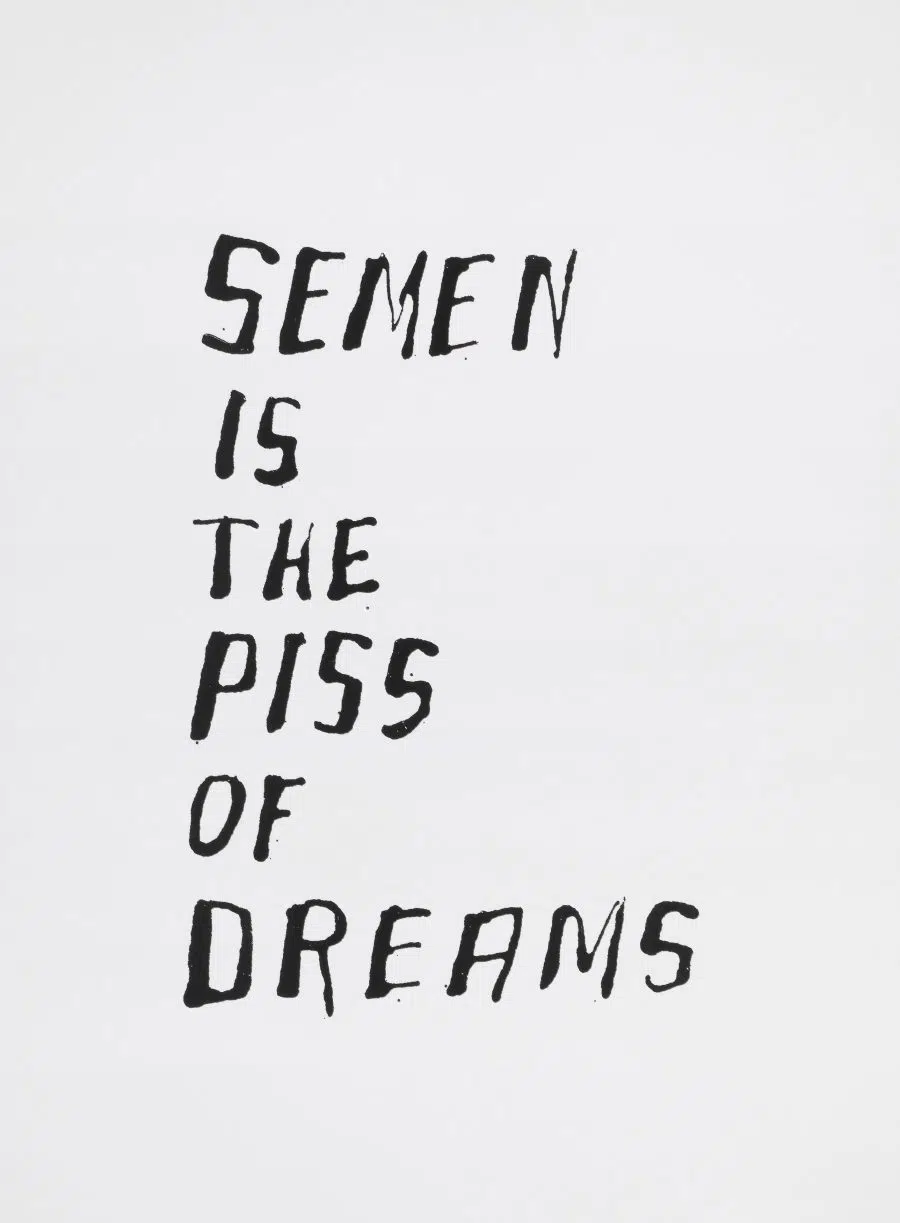 SEMEN
IS
THE
PISS
OF
DREAMS